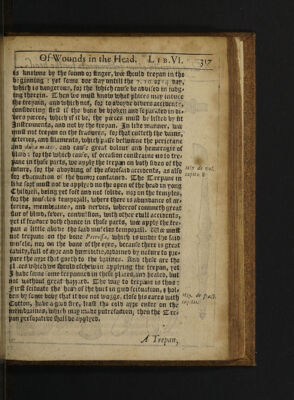 Of Wounds in the Head. LIB.VI. 317
is knowne by the sound or finger, wee should trepan in the
beginning : yet some doe stay untill the 7. 10. or 14. day,
which is dangerous, for the which cause be advised in judg-
ing therein. Then we must know what places may indure
the trepane, and which not, for to avoyde divers accidents,
considering first if the bone be broken and separated in di-
vers pieces, which if it be, the pieces must be lifted by fit
Instruments, and not by the trepan. In like manner, we
must not trepan on the sutures, for that cutteth the vaines,
arteries, and filaments, which passe betwixt the pericrane
and dura mater, and cause great dolour and hemoragie of
blood : for the which cause, if occasion constraine us to tre-
pane in those parts, we apply the trepan on both sides of the
suture, for the avoyding of the aforesaid accidents, as also
for evacuation of the humor contained. The Trepan in
like sort must not be applyed on the open of the head in yong
Children, being yet soft and not solide, nor on the temples,
for the muscles temporall, where there is abundance of ar-
teries, membranes, and nerves, whereof commeth great
flux of blood, fever, convulsion, with other evill accidents,
yet if fracture doth chance in those parts, wee apply the tre-
pan a little above the said muscles temporall. Wee must
not trepane on the bone Petrosa, which is under the said
muscles, nor on the bone of the eyes, because there is great
cavity, full of ayre and humiditie, ordained by nature to pre-
pare the ayre that goeth to the braines. And these are the
places which we should eschew in applying the trepan, yet
I have seene some trepaned in these places, and healed, but
not without great hazard. The way to trepane is thus :
First situate the head of the hurt in good situation, hol-
den by some body that it doe not wagge, close his eares with
Cotton, have a good fire, least the cold ayre enter on the
membranes, which may make putrefaction; then the Tre-
pan preparative shall be applyed.
A Trepan,